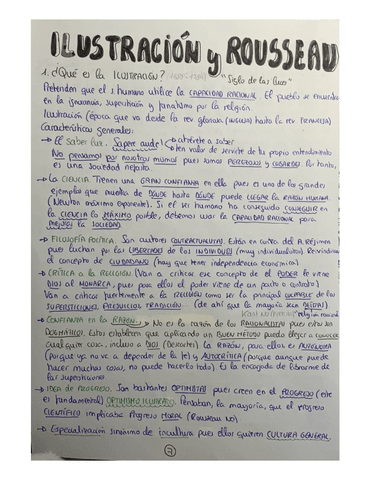 ILUSTRACIÓN y ROUSSEAU
1. ¿Qué es la ILUSTRACIÓN? "Siglo de las luces"
Pretenden que el s humano utilice la CAPACIDAD RACIONAL. El pueblo se encuentra
en la ignorancia, superstición y fanatismo por la religión.
Ilustración (época que va desde la rev gloriosa (inglesa) hasta la rev francesa)
Características generales:
→ El Saber luz. Sapere aude! → atrévete a saber
→ ten valor de servirte de tu propio entendimiento
No pensamos por nosotros mismos pues somos PEREZOSOS y COBARDES. Por tanto,
es una sociedad
→ La CIENCIA Tienen una GRAN CONFIANZA en ella pues es uno de los grandes
ejemplos que muestra de DÓNDE hasta DÓNDE puede LLEGAR la RAZÓN HUMANA
(Newton máximo exponente). Si el ser humano ha conseguido CONSEGUIR en
la CIENCIA lo MÁXIMO posible, debemos usar la CAPACIDAD RACIONAL para
MEJORAR la SOCIEDAD
→ FILOSOFÍA POLÍTICA. Son autores CONTRACTUALISTAS. Están en contra del A. Régimen
pues luchan por las LIBERTADES de los INDIVIDUOS (muy individualistas). Reivindican
el concepto de CIUDADANO (hay que tener independencia económica).
→ CRÍTICA A LA RELIGIÓN (Van a criticar ese concepto de el PODER le viene
DIOS al MONARCA, pues para ellos el poder viene de un pacto o contrato)
Van a criticar fuertemente a la RELIGIÓN como ser la principal CULPABLE de las
SUPERSTICIONES, PREJUICIOS, TRADICIÓN → (de ahí que la mayoría sean DEÍSTAS)
→ CONFIANZA en la RAZÓN. → No es la razón de los RACIONALISTAS pues estos son
DOGMÁTICOS. Estos establecen que aplicando un BUEN MÉTODO puedo llegar a CONOCER
cualquier cosa, incluso a DIOS (Descartes) La RAZÓN para ellos es AUTÓNOMA
(porque ya no va a depender de la fe) y AUTOCRÍTICA (porque aunque puede
hacer muchas cosas, no puede hacerlo todo). Es la encargada de librarme de
las supersticiones
→ IDEA DE PROGRESO. Son bastantes OPTIMISTAS pues creen en el PROGRESO (este
es fundamental) OPTIMISMO ILUSTRADO. Pensaban, la mayoría, que el Progreso
CIENTÍFICO implicaba Progreso MORAL (Rousseau NO)
→ Especialización sinónimo de incultura pues ellos quieren CULTURA GENERAL.